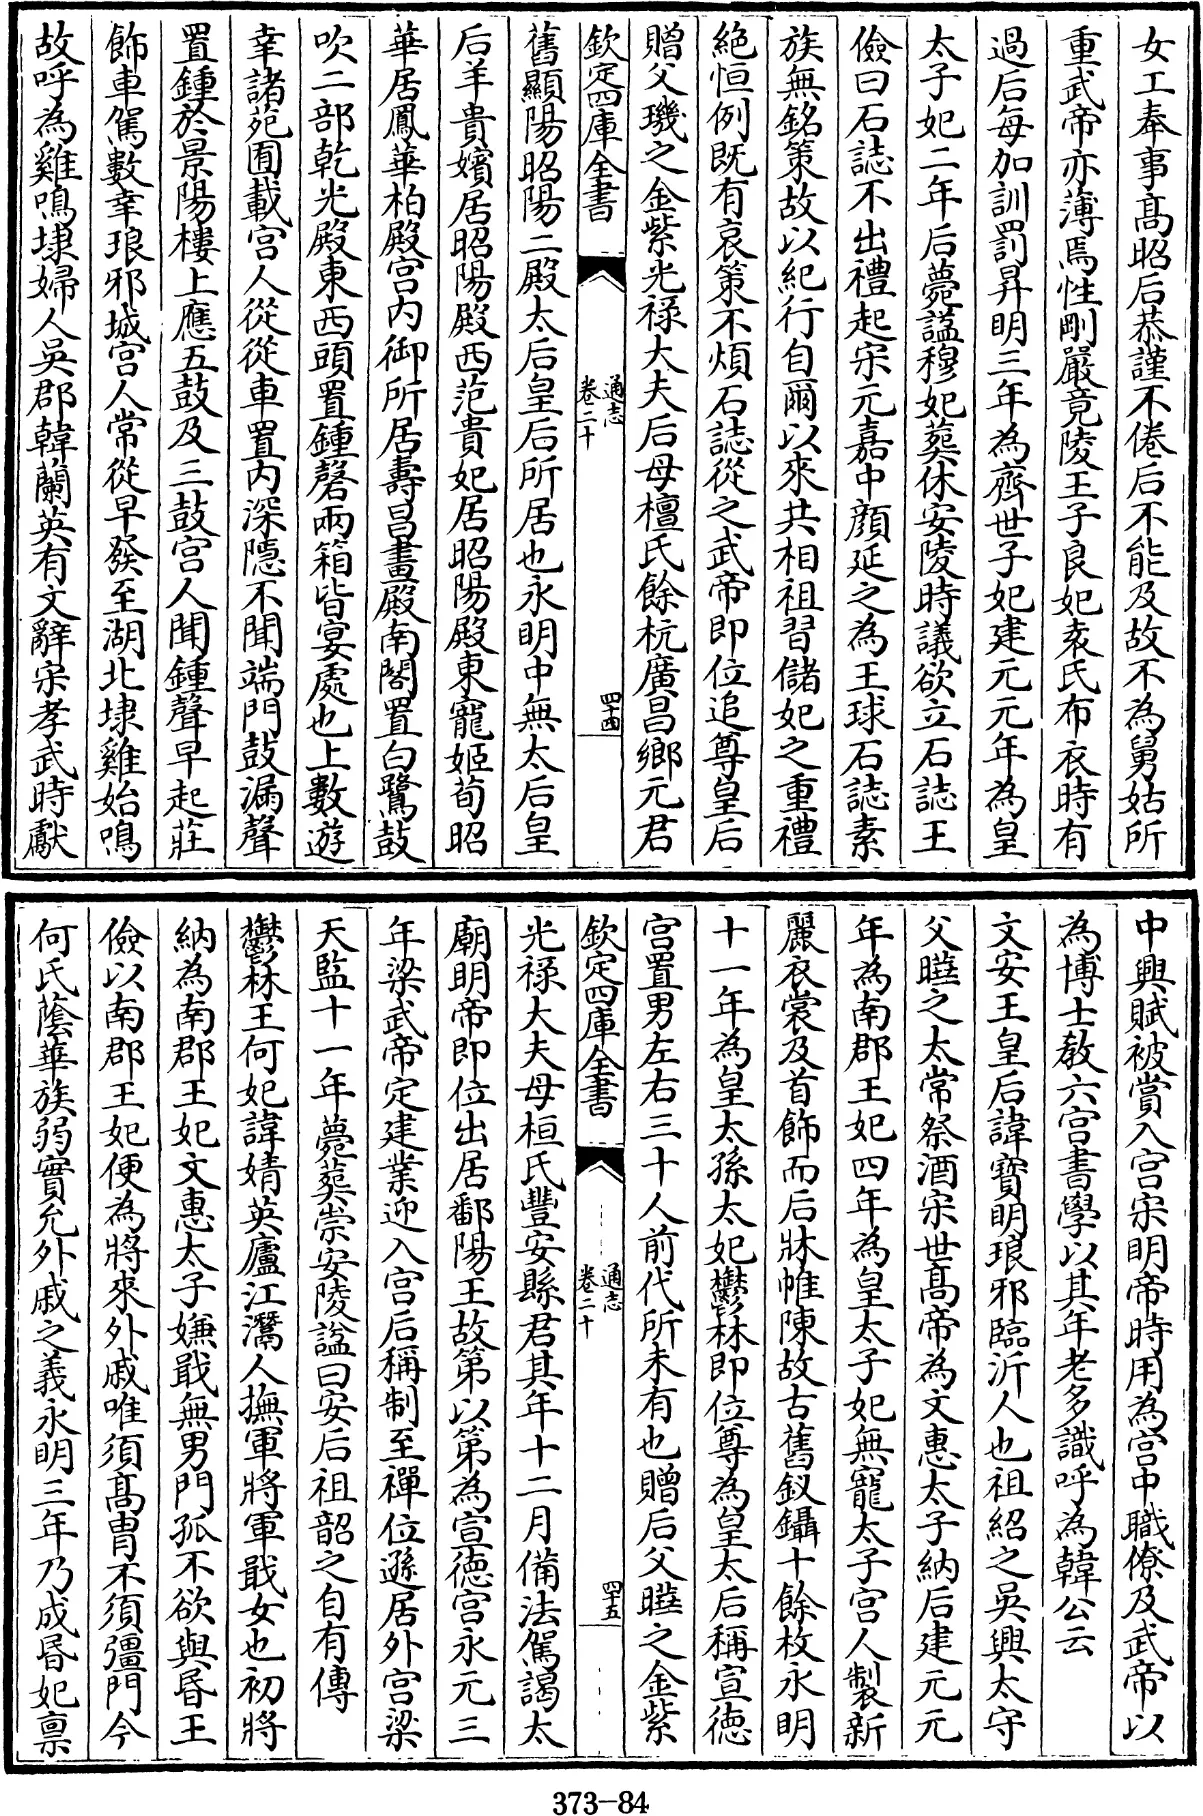 女工奉事髙昭后恭謹不倦后不能及故不為舅姑所
重武帝亦薄焉性剛嚴竟陵王子良妃袁氏布衣時有
過后每加訓罰昇明三年為齊世子妃建元元年為皇
太子妃二年后薨諡穆妃葬休安陵時議欲立石誌王
儉曰石誌不出禮起宋元嘉中顔延之為王球石誌素
族無銘策故以紀行自爾以來共相祖習儲妃之重禮
絶恒例既有哀策不煩石誌從之武帝即位追尊皇后
贈父璣之金紫光祿大夫后母檀氏餘杭廣昌鄉元君
欽定四庫全書
通志
卷二十
四十四
舊顯陽昭陽二殿太后皇后所居也永明中無太后皇
后羊貴嬪居昭陽殿西范貴妃居昭陽殿東寵姬荀昭
華居鳳華柏殿宫内御所居壽昌畫殿南閣置白鷺鼓
吹二部乾光殿東西頭置鍾磬兩箱皆宴處也上數遊
幸諸苑囿載宫人從從車置内深隱不聞端門鼓漏聲
置鍾於景陽樓上應五鼓及三鼓宫人聞鍾聲早起莊
飾車駕數幸琅邪城宫人常從早發至湖北埭雞始鳴
故呼為雞鳴埭婦人吳郡韓蘭英有文辭宋孝武時獻
中興賦被賞入宫宋明帝時用為宫中職僚及武帝以
為博士教六宫書學以其年老多識呼為韓公云
文安王皇后諱寶明琅邪臨沂人也祖紹之吳興太守
父㬓之太常祭酒宋世髙帝為文惠太子納后建元元
年為南郡王妃四年為皇太子妃無寵太子宫人製新
麗衣裳及首飾而后牀帷陳故古舊釵鑷十餘枚永明
十一年為皇太孫太妃鬱林即位尊為皇太后稱宣徳
宫置男左右三十人前代所未有也贈后父㬓之金紫
欽定四庫全書
通志
卷二十
四十五
光祿大夫母桓氏豐安縣君其年十二月備法駕謁太
廟明帝即位出居鄱陽王故第以第為宣德宫永元三
年梁武帝定建業迎入宫后稱制至禪位遜居外宫梁
天監十一年薨葬崇安陵諡曰安后祖韶之自有傳
鬱林王何妃諱婧英廬江灊人撫軍將軍戢女也初將
納為南郡王妃文惠太子嫌戢無男門孤不欲與昏王
儉以南郡王妃便為將來外戚唯須髙胄不須彊門今
何氏蔭華族弱實允外戚之義永明三年乃成昏妃禀
373-84